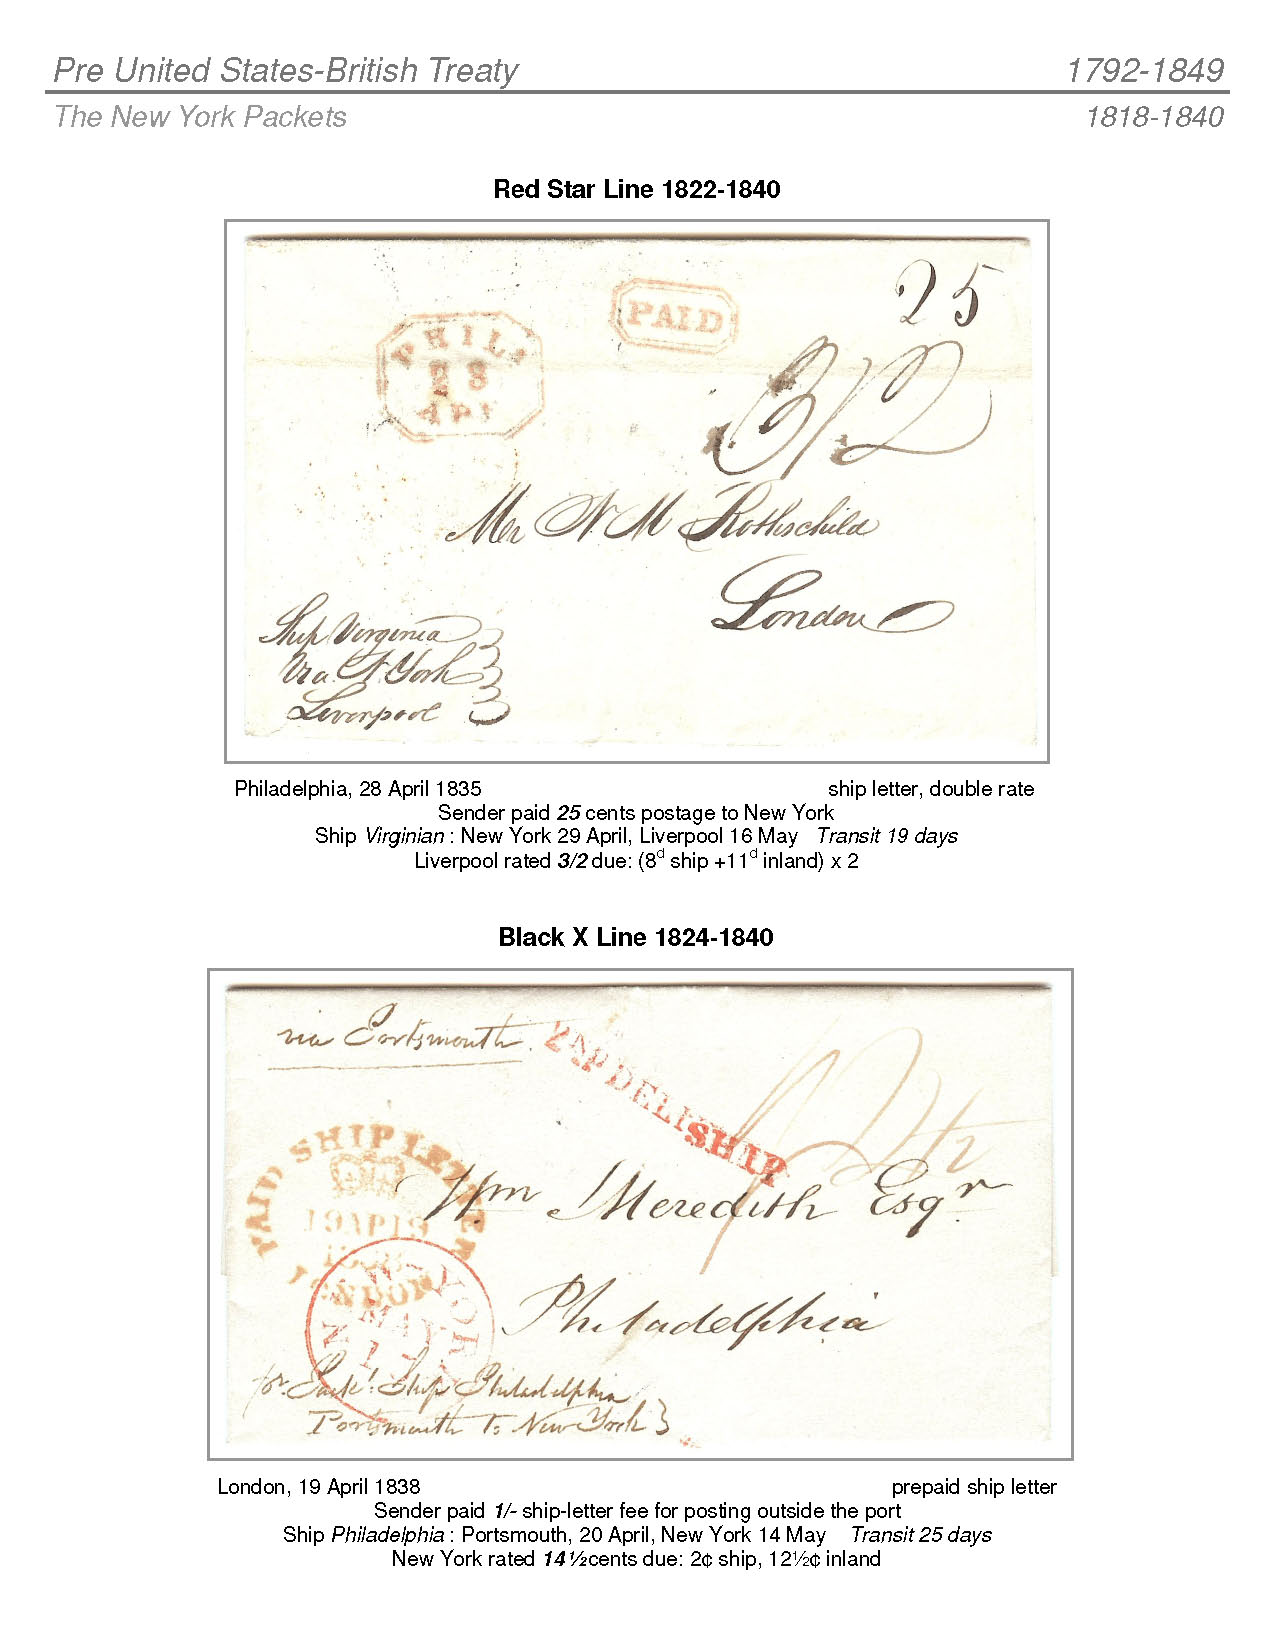 Pre United States-British Treaty 1792-1849
The New York Packets 1818-1840
Red Star Line 1822-1840
25
PAID
PHIL
28
APR
3/2
Mr N. M Rothschild
London
Ship Virginia
Via N. York
Liverpool
Philadelphia, 28 April 1835 ship letter, double rate
Sender paid 25 cents postage to New York
Ship Virginian : New York 29 April, Liverpool 16 May Transit 19 days
Liverpool rated 3/2 due: (8d ship +11d inland) x 2
Black X Line 1824-1840
via Portsmouth
2ND DELI
SHIP
14½
PAID SHIP LETTER
19AP19
1838
LONDON
Wm Meredith Esqr
Philadelphia
NEW-YORK
MAY
pr. Packt. Ship Philadelphia
Portsmouth to New York
London, 19 April 1838 prepaid ship letter
Sender paid 1/- ship-letter fee for posting outside the port
Ship Philadelphia : Portsmouth, 20 April, New York 14 May Transit 25 days
New York rated 14½cents due: 2¢ ship, 12½¢ inland